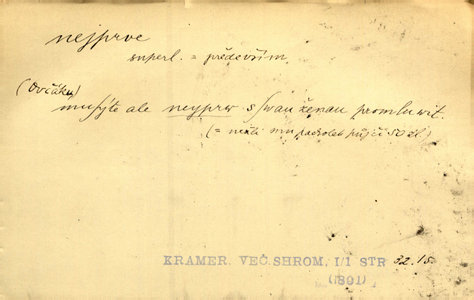 nejprve
superl. = především
(Ovčáku)
musýte ale neyprw s swau ženau promluwit.
(= nežli mu pacholek půjčí 50 zl.)
KRAMER. VEČ. SHROM. I/1 STR 32.15
(1891)